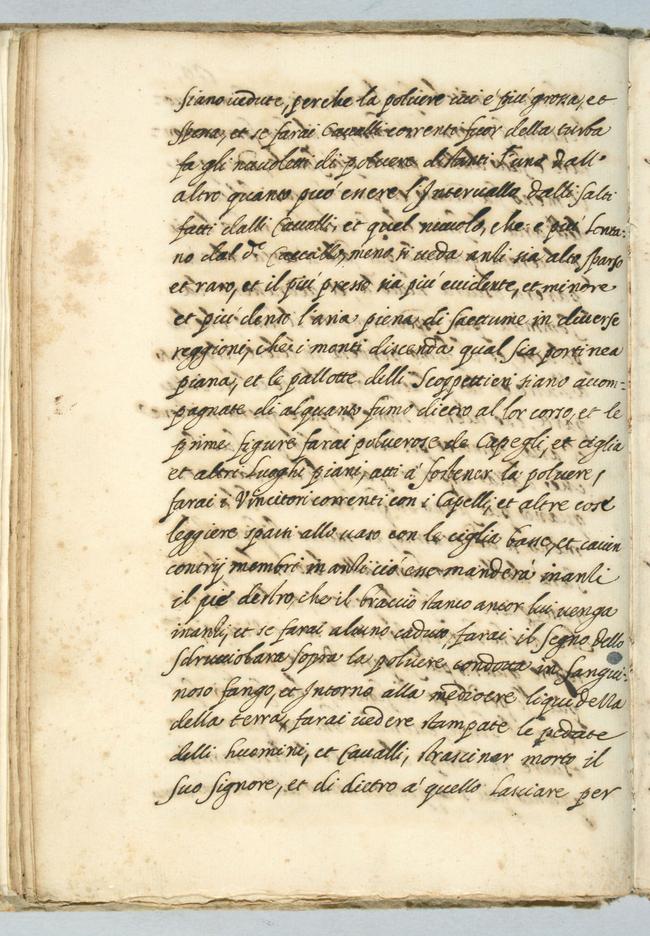 siano uedute, perche la poluere iui è più grossa, et
spessa, et se farai Caualli correnti fuor della turba
fa gli nuuoletti di poluere distanti l'uno dall'
altro quanto può essere l'Interuallo dalli salti
fatti dalli Caualli, et quel nuuolo, che è più lonta:
no dal dº Cauallo, meno si ueda anzi sia alto sparso
et raro, et il più presso sia più euidente, et minore
et più denso l'aria piena di saettume in diuerse
reggioni, chi i monti discenda qual sia portinea
piana, et le pallotte delli Scoppettieri siano accom=
pagnate di alquanto fumo dietro al lor corso, et le
prime figure farai poluerose de Capegli, et ciglia
et altri Luoghi piani, atti à sostener la poluere,
farai i Vincitori correnti con i Capelli, et altre cose
leggiere sparsi allo uato con le ciglia basse, et caccin
contrij membri inanti ciò esse manderà inanti
il piè destro, che il braccio stanco ancor lui uenga
inanti, et se farai alcuno caduto, farai il segno dello
sdrucciolare sopra la poluere condotta in sangui:
noso fango, et Intorno alla mediocre liquidella
della terra, farai uedere stampate le pedate
delli huomini, et Caualli, strascinar morto il
suo signore, et di dietro a' quello Lasciare per